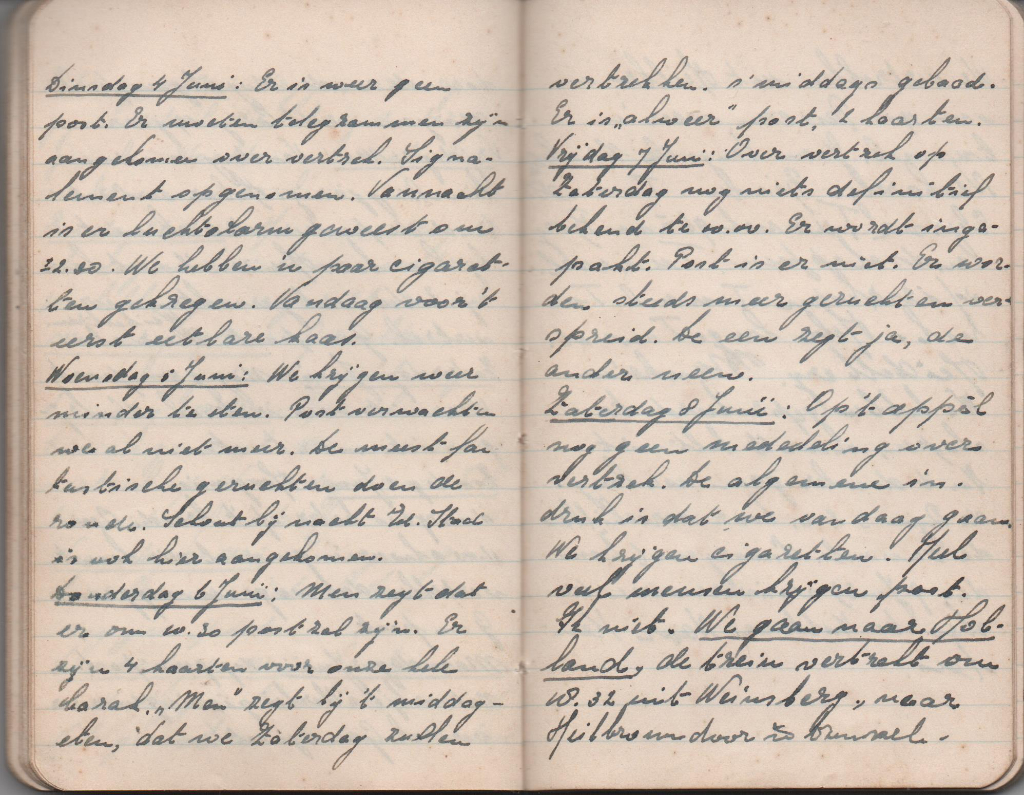 Dinsdag 4 Juni: Er is weer geen
post. Er moeten telegrammen zijn
aangekomen over vertrek. Signa-
lement opgenomen. Vannacht
is er luchtalarm geweest om
22.00. We hebben n paar cigaret-
ten gekregen. Vandaag voor 't
eerst eetbare kaas.
Woensdag 5 Juni: We krijgen weer
minder te eten. Post verwachten
we al niet meer. De meest fan
tastische geruchten doen de
ronde. Schout bij nacht Stad
is ook hier aangekomen.
Donderdag 6 Juni: Men zegt dat
er om 10.30 post zal zijn. Er
zijn 4 kaarten voor onze hele
barak. „Men" zegt bij 't middag-
eten, dat we Zaterdag zullen
vertrekken. s'middags gebaad.
Er is „alweer" post, 2 kaarten.
Vrijdag 7 Juni: Over vertrek op
Zaterdag nog niets definitief
bekend te w.o.v. Er wordt inge-
pakt. Post is er niet. Er wor-
den steeds meer geruchten ver-
spreid. De een zegt ja, de
ander neen.
Zaterdag 8 Junii: Op't appèl
nog geen mededeling over
vertrek. De algemene in.
druk is dat we vandaag gaan.
We krijgen cigaretten. Heel
veel mensen krijgen post.
Ik niet. We gaan naar Hol-
land, de trein vertrekt om
18.32 uit Weinsberg, naar
Heilbronn door